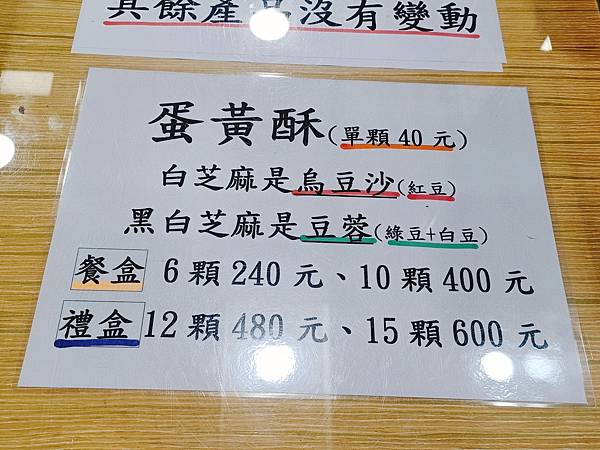 其餘產品沒有變動
蛋黃酥(單顆40元)
白芝麻是烏豆沙(紅豆)
黑白芝麻是豆蓉(綠豆+白豆)
餐盒 6顆240元、10顆400元
禮盒 12顆480元、15顆600元